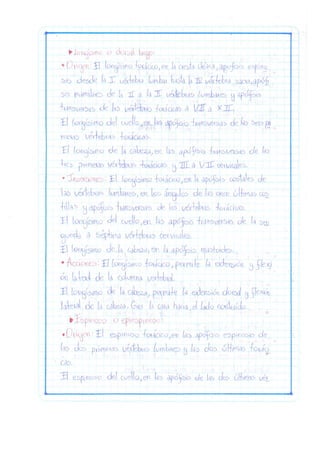 ▸ Longísimo o dorsal largo:
• Origen: El longísimo torácico, en la cresta ilíaca, apófisis espino
sas desde la I vértebra lumbar hasta la vértebra sacra, apófi
sis mamilares de la II a la vértebras lumbares y apófisis
transversas de las vértebras torácicas a VII a XII.
El longísimo del cuello, en las apófisis transversas de las seis pri
meras vértebras torácicas.
El longísimo de la cabeza, en las apófisis transversas de las
tres primeras vértebras torácicas y III a VII cervicales.
• Inserciones: El longísimo torácico, en la apófisis costales de
las vértebras lumbares, en los ángulos de las once últimas cos
tillas y apófisis transversas de las vértebras torácicas.
El longísimo del cuello, en las apófisis transversas de la se
gunda a séptima vértebras cervicales.
El longísimo de la cabeza, en la apófisis mastoides.
• Acciones: El longísimo torácico, permite la extensión y flexi
ón lateral de la columna vertebral.
El longísimo de la cabeza, permite la extensión dorsal y flexión
lateral de la cabeza. Gira la cara hacia el lado contraído.
▸ Espinoso o epiespinoso:
• Origen: El espinoso torácico, en las apófisis espinosas de
las dos primeras vértebras lumbares y las dos últimas torác
icas.
El espinoso del cuello, en las apófisis de las dos últimas vér